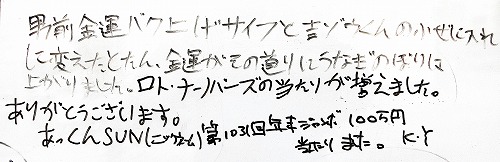 男前金運バク上げサイフと吉ゾウくんの小ぜに入れ
に変えたとたん、金運がその通りにうなぎのぼりに
上がりました。ロト・ナンバーズの当たりが増えました。
ありがとうございます。
あっくんSUN(ニックネーム)第1031回年末ジャンボ100万円
当たりました。K.Y